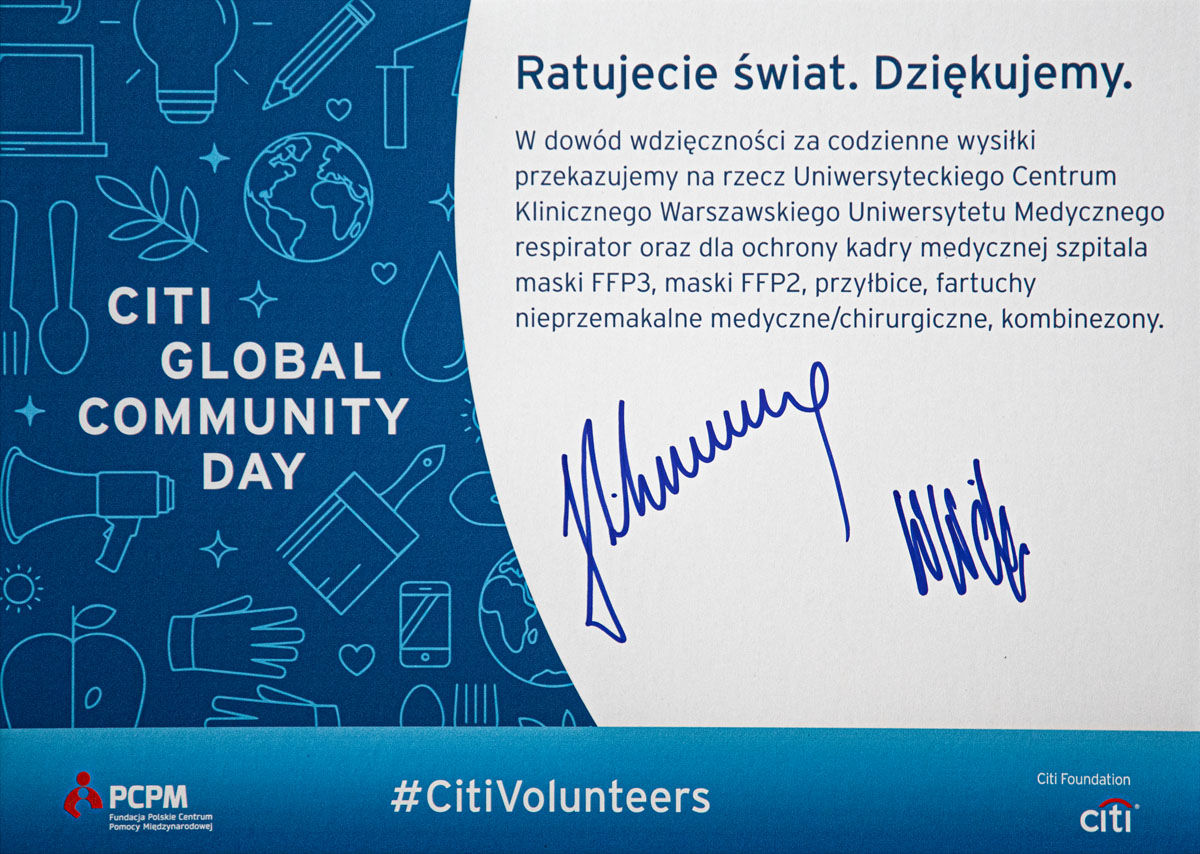 Ratujecie świat. Dziękujemy.
W dowód wdzięczności za codzienne wysiłki
przekazujemy na rzecz Uniwersyteckiego Centrum
Klinicznego Warszawskiego Uniwersytetu Medycznego
respirator oraz dla ochrony kadry medycznej szpitala
maski FFP3, maski FFP2, przyłbice, fartuchy
nieprzemakalne medyczne/chirurgiczne, kombinezony.
CITI
GLOBAL
COMMUNITY
DAY
PCPM
Fundacja Polskie Centrum
Pomocy Międzynarodowej
#CitiVolunteers
Citi Foundation
citi®